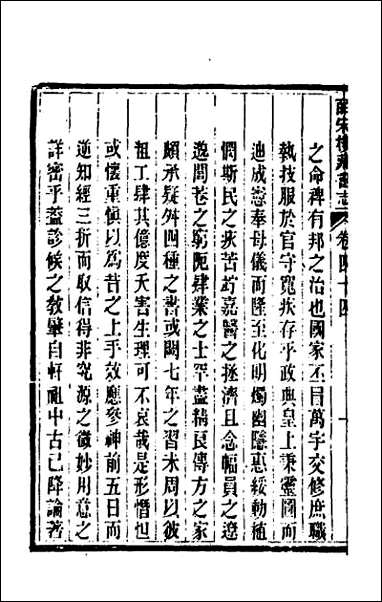 皕宋樓藏書志 卷四十四
之命稗有邦之治也國家丕冒萬宇交修庶職
執技服於官守寬疾存乎政典皇上秉靈圖而
迪成憲奉母儀而隆至化明燭幽隱惠綏動植
憫斯民之疾苦竚嘉醫之拯濟且念幅員之遼
邈閭巷之窮阨肄業之士罕盡精良傳方之家
頗承疑舛四種之書或闕七年之習未周以彼
粗工肆其億度夭害生理可不哀哉是形憯怛
或懷重愼以爲昔之上手效應參神前五日而
逆知經三折而取信得非究源之微妙用意之
詳密乎蓋診候之敎肇自軒祖中古已降論著